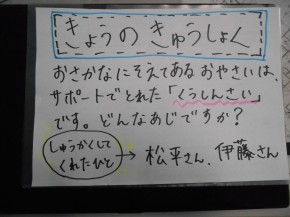 きょうのきゅうしょく
おさかなにそえてあるおやさいは、
サポートでとれた「くうしんさい」
です。どんなあじですか?
しゅうかくして
くれたひと
→ 松平さん、伊藤さん